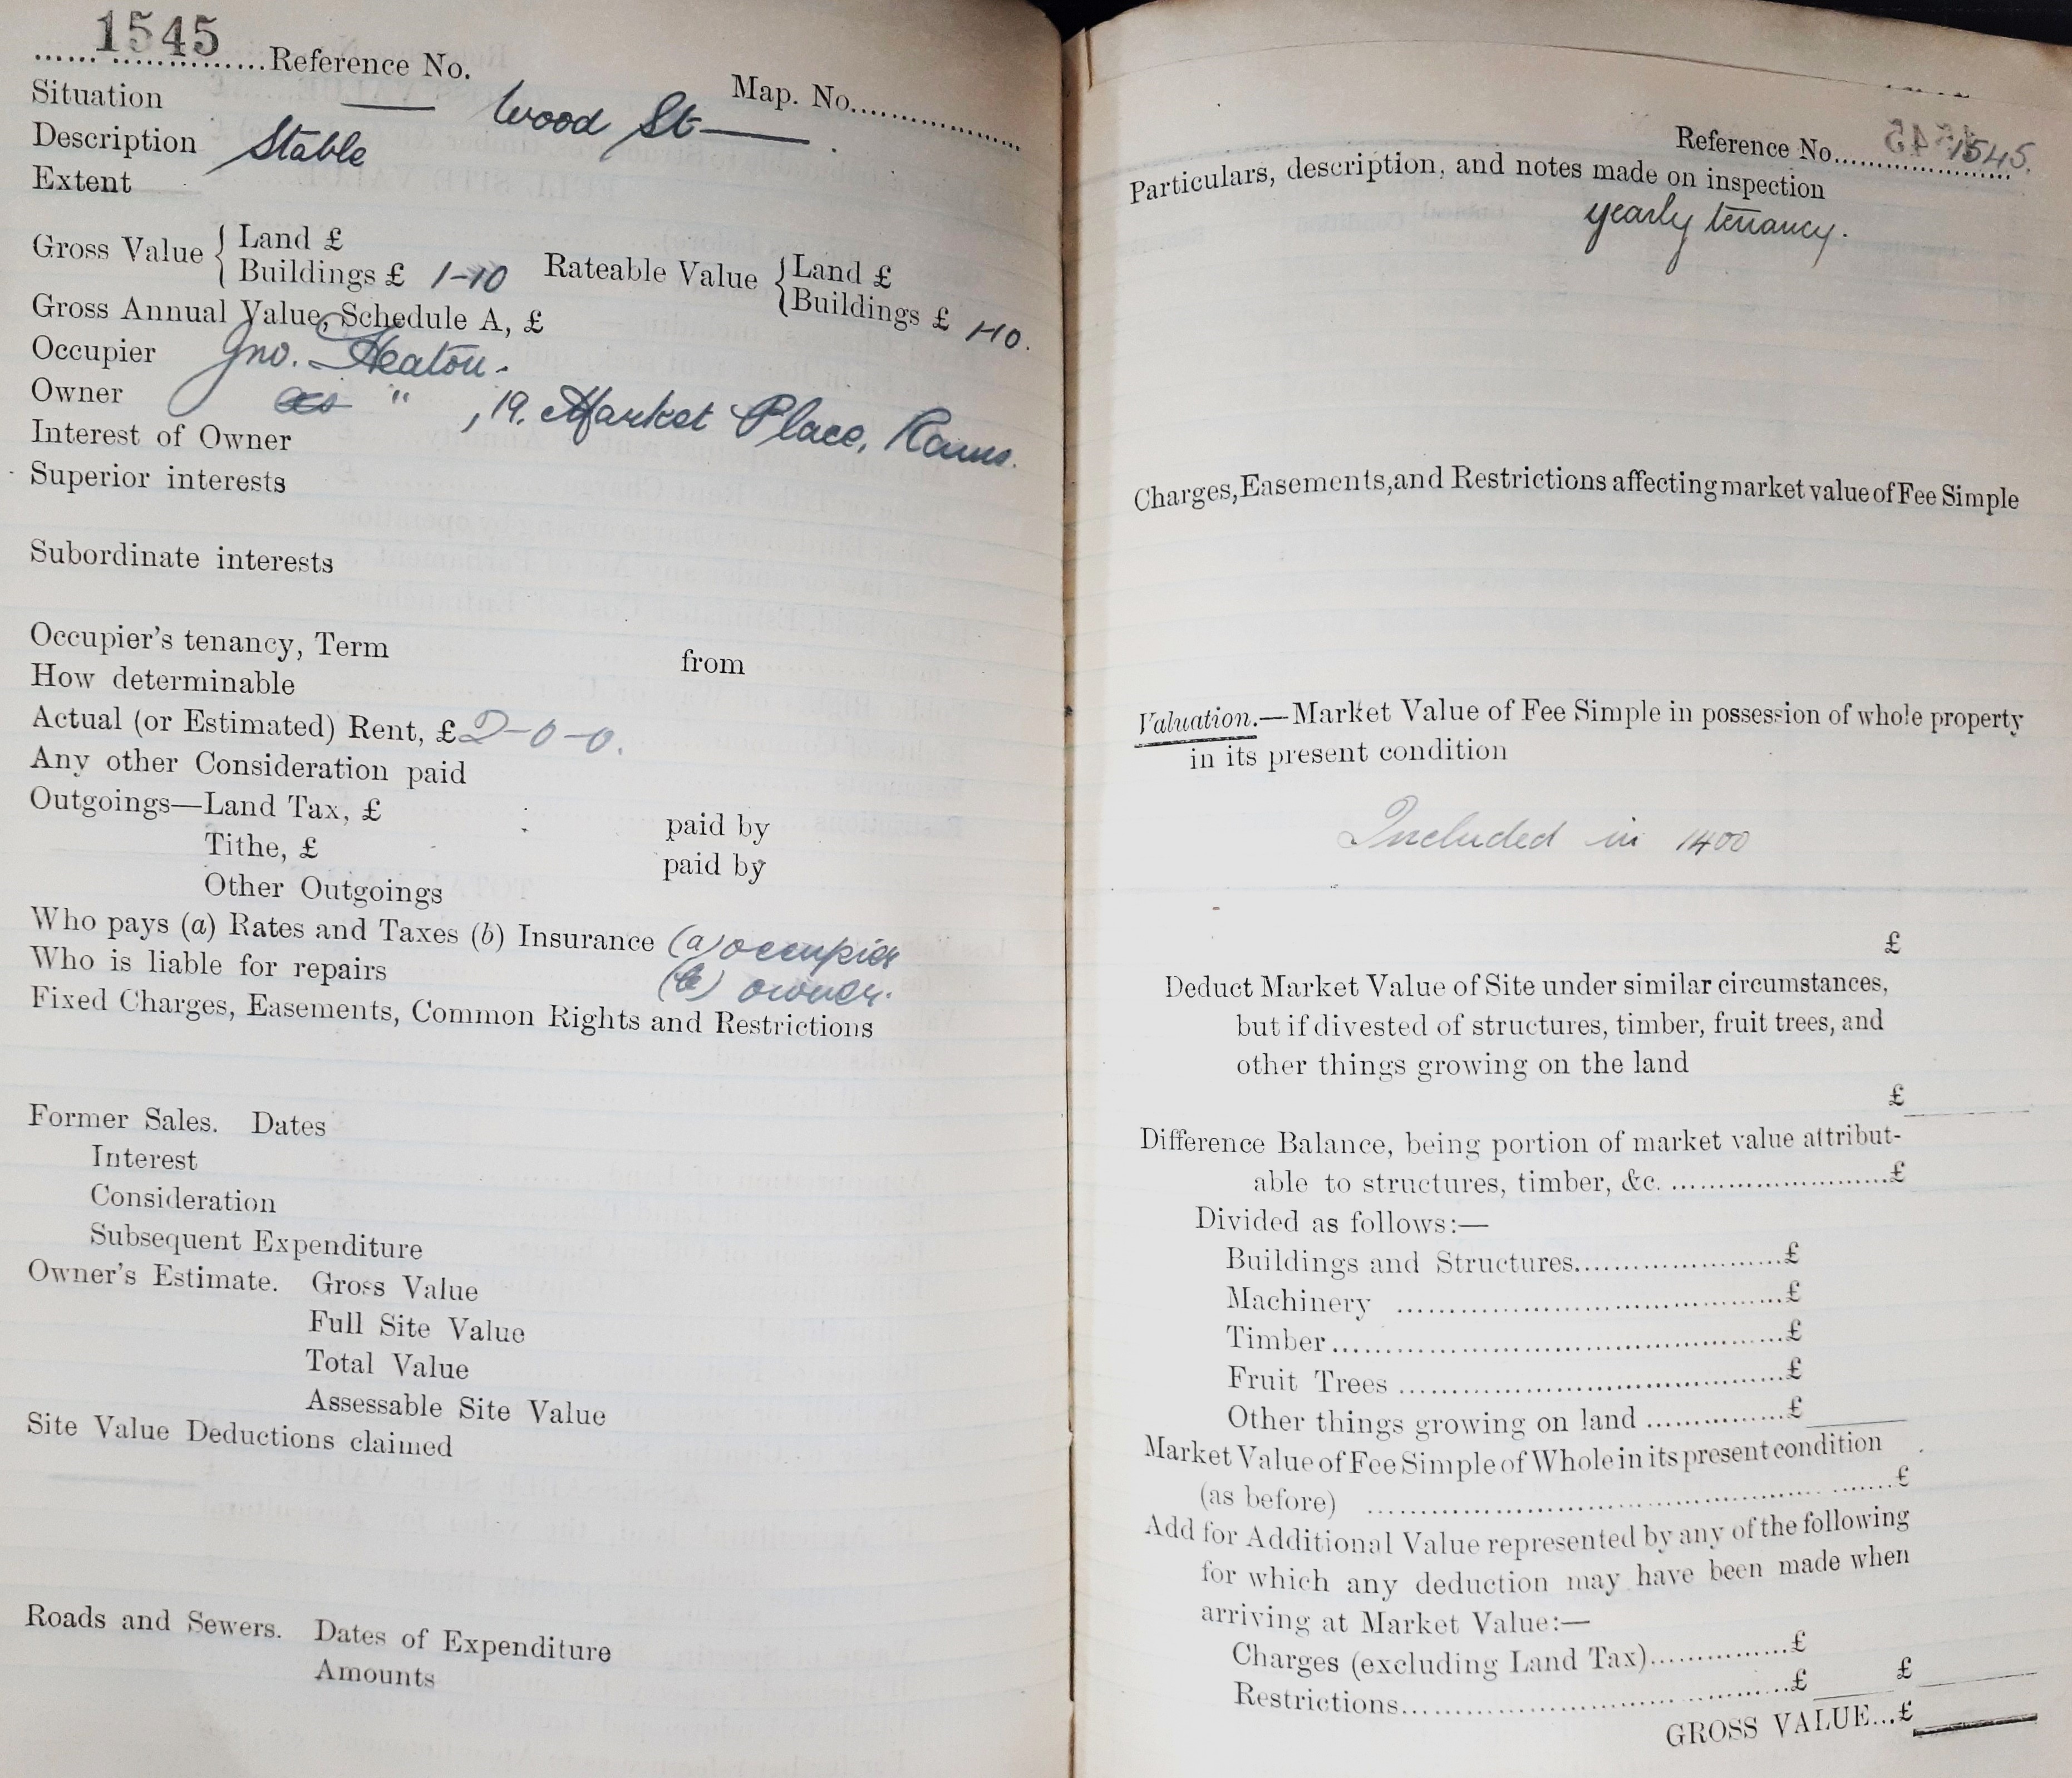 1545
Reference No.
Map. No.
Situation — Wood St —
Description Stable
Extent
Gross Value { Land £
Buildings £ 1-10 Rateable Value { Land £
Buildings £ 1-10.
Gross Annual Value, Schedule A, £
Occupier Jno. Heaton.
Owner " , 19. Market Place, Rams.
Interest of Owner
Superior interests
Subordinate interests
Occupier's tenancy, Term from
How determinable
Actual (or Estimated) Rent, £ 2-0-0.
Any other Consideration paid
Outgoings—Land Tax, £ paid by
Tithe, £ paid by
Other Outgoings
Who pays (a) Rates and Taxes (b) Insurance (a) occupier
Who is liable for repairs (b) owner.
Fixed Charges, Easements, Common Rights and Restrictions
Former Sales. Dates
Interest
Consideration
Subsequent Expenditure
Owner's Estimate. Gross Value
Full Site Value
Total Value
Assessable Site Value
Site Value Deductions claimed
Roads and Sewers. Dates of Expenditure
Amounts
Reference No. 1545.
Particulars, description, and notes made on inspection
yearly tenancy.
Charges, Easements, and Restrictions affecting market value of Fee Simple
Valuation.—Market Value of Fee Simple in possession of whole property
in its present condition
Included in 1400
£
Deduct Market Value of Site under similar circumstances,
but if divested of structures, timber, fruit trees, and
other things growing on the land
£
Difference Balance, being portion of market value attribut-
able to structures, timber, &c. £
Divided as follows:—
Buildings and Structures £
Machinery £
Timber £
Fruit Trees £
Other things growing on land £
Market Value of Fee Simple of Whole in its present condition
(as before) £
Add for Additional Value represented by any of the following
for which any deduction may have been made when
arriving at Market Value:—
Charges (excluding Land Tax) £
Restrictions £ £
GROSS VALUE...£